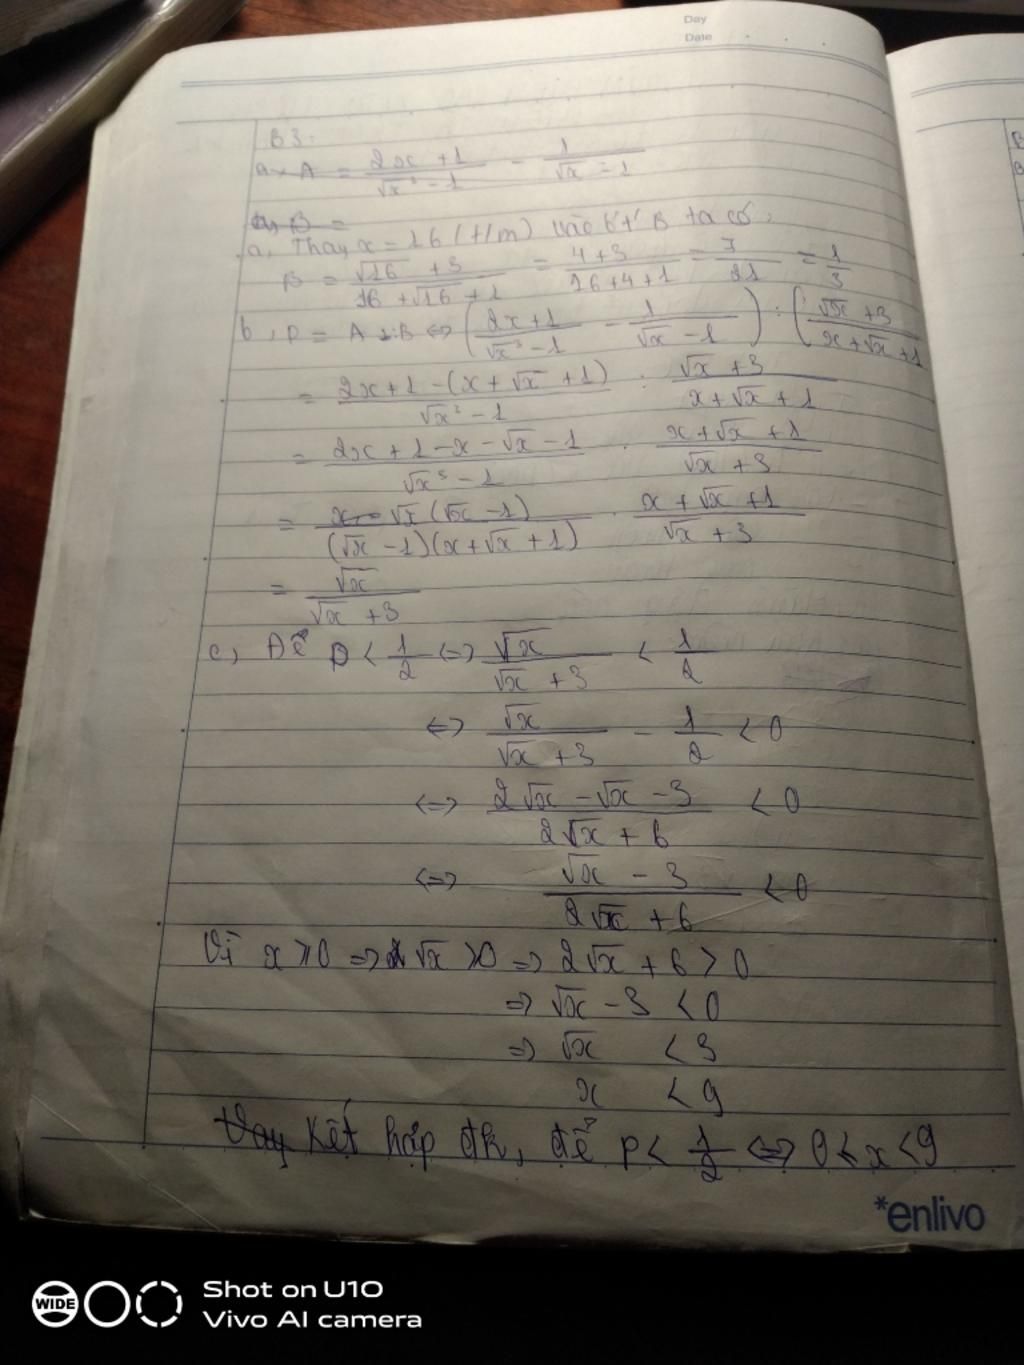 Day
Date
B3:
a, A = (2x+1)/(√x³ - 1) - 1/(√x - 1)
a, B =
a, Thay x = 16 (t/m) vào b't' B ta có,
B = (√16 + 3)/(16 + √16 + 1) = (4+3)/(16+4+1) = 7/21 = 1/3
b, P = A : B ⇔ ((2x+1)/(√x³ - 1) - 1/(√x - 1)) : ((√x + 3)/(x + √x + 1))
= (2x+1-(x+√x+1))/(√x³ - 1) : (√x + 3)/(x + √x + 1)
= (2x+1-x-√x-1)/(√x³ - 1) . (x+√x+1)/(√x + 3)
= (√x(√x - 1))/((√x - 1)(x+√x+1)) . (x+√x+1)/(√x + 3)
= √x/(√x + 3)
c, Để P < 1/2 ⇔ √x/(√x + 3) < 1/2
⇔ √x/(√x + 3) - 1/2 < 0
⇔ (2√x - √x - 3)/(2√x + 6) < 0
⇔ (√x - 3)/(2√x + 6) < 0
Vì x ≥ 0 ⇒ √x ≥ 0 ⇒ 2√x + 6 > 0
⇒ √x - 3 < 0
⇒ √x < 3
x < 9
Vậy Kết hợp đk, để P < 1/2 ⇔ 0 < x < 9
*enlivo
WIDE
Shot on U10
Vivo AI camera